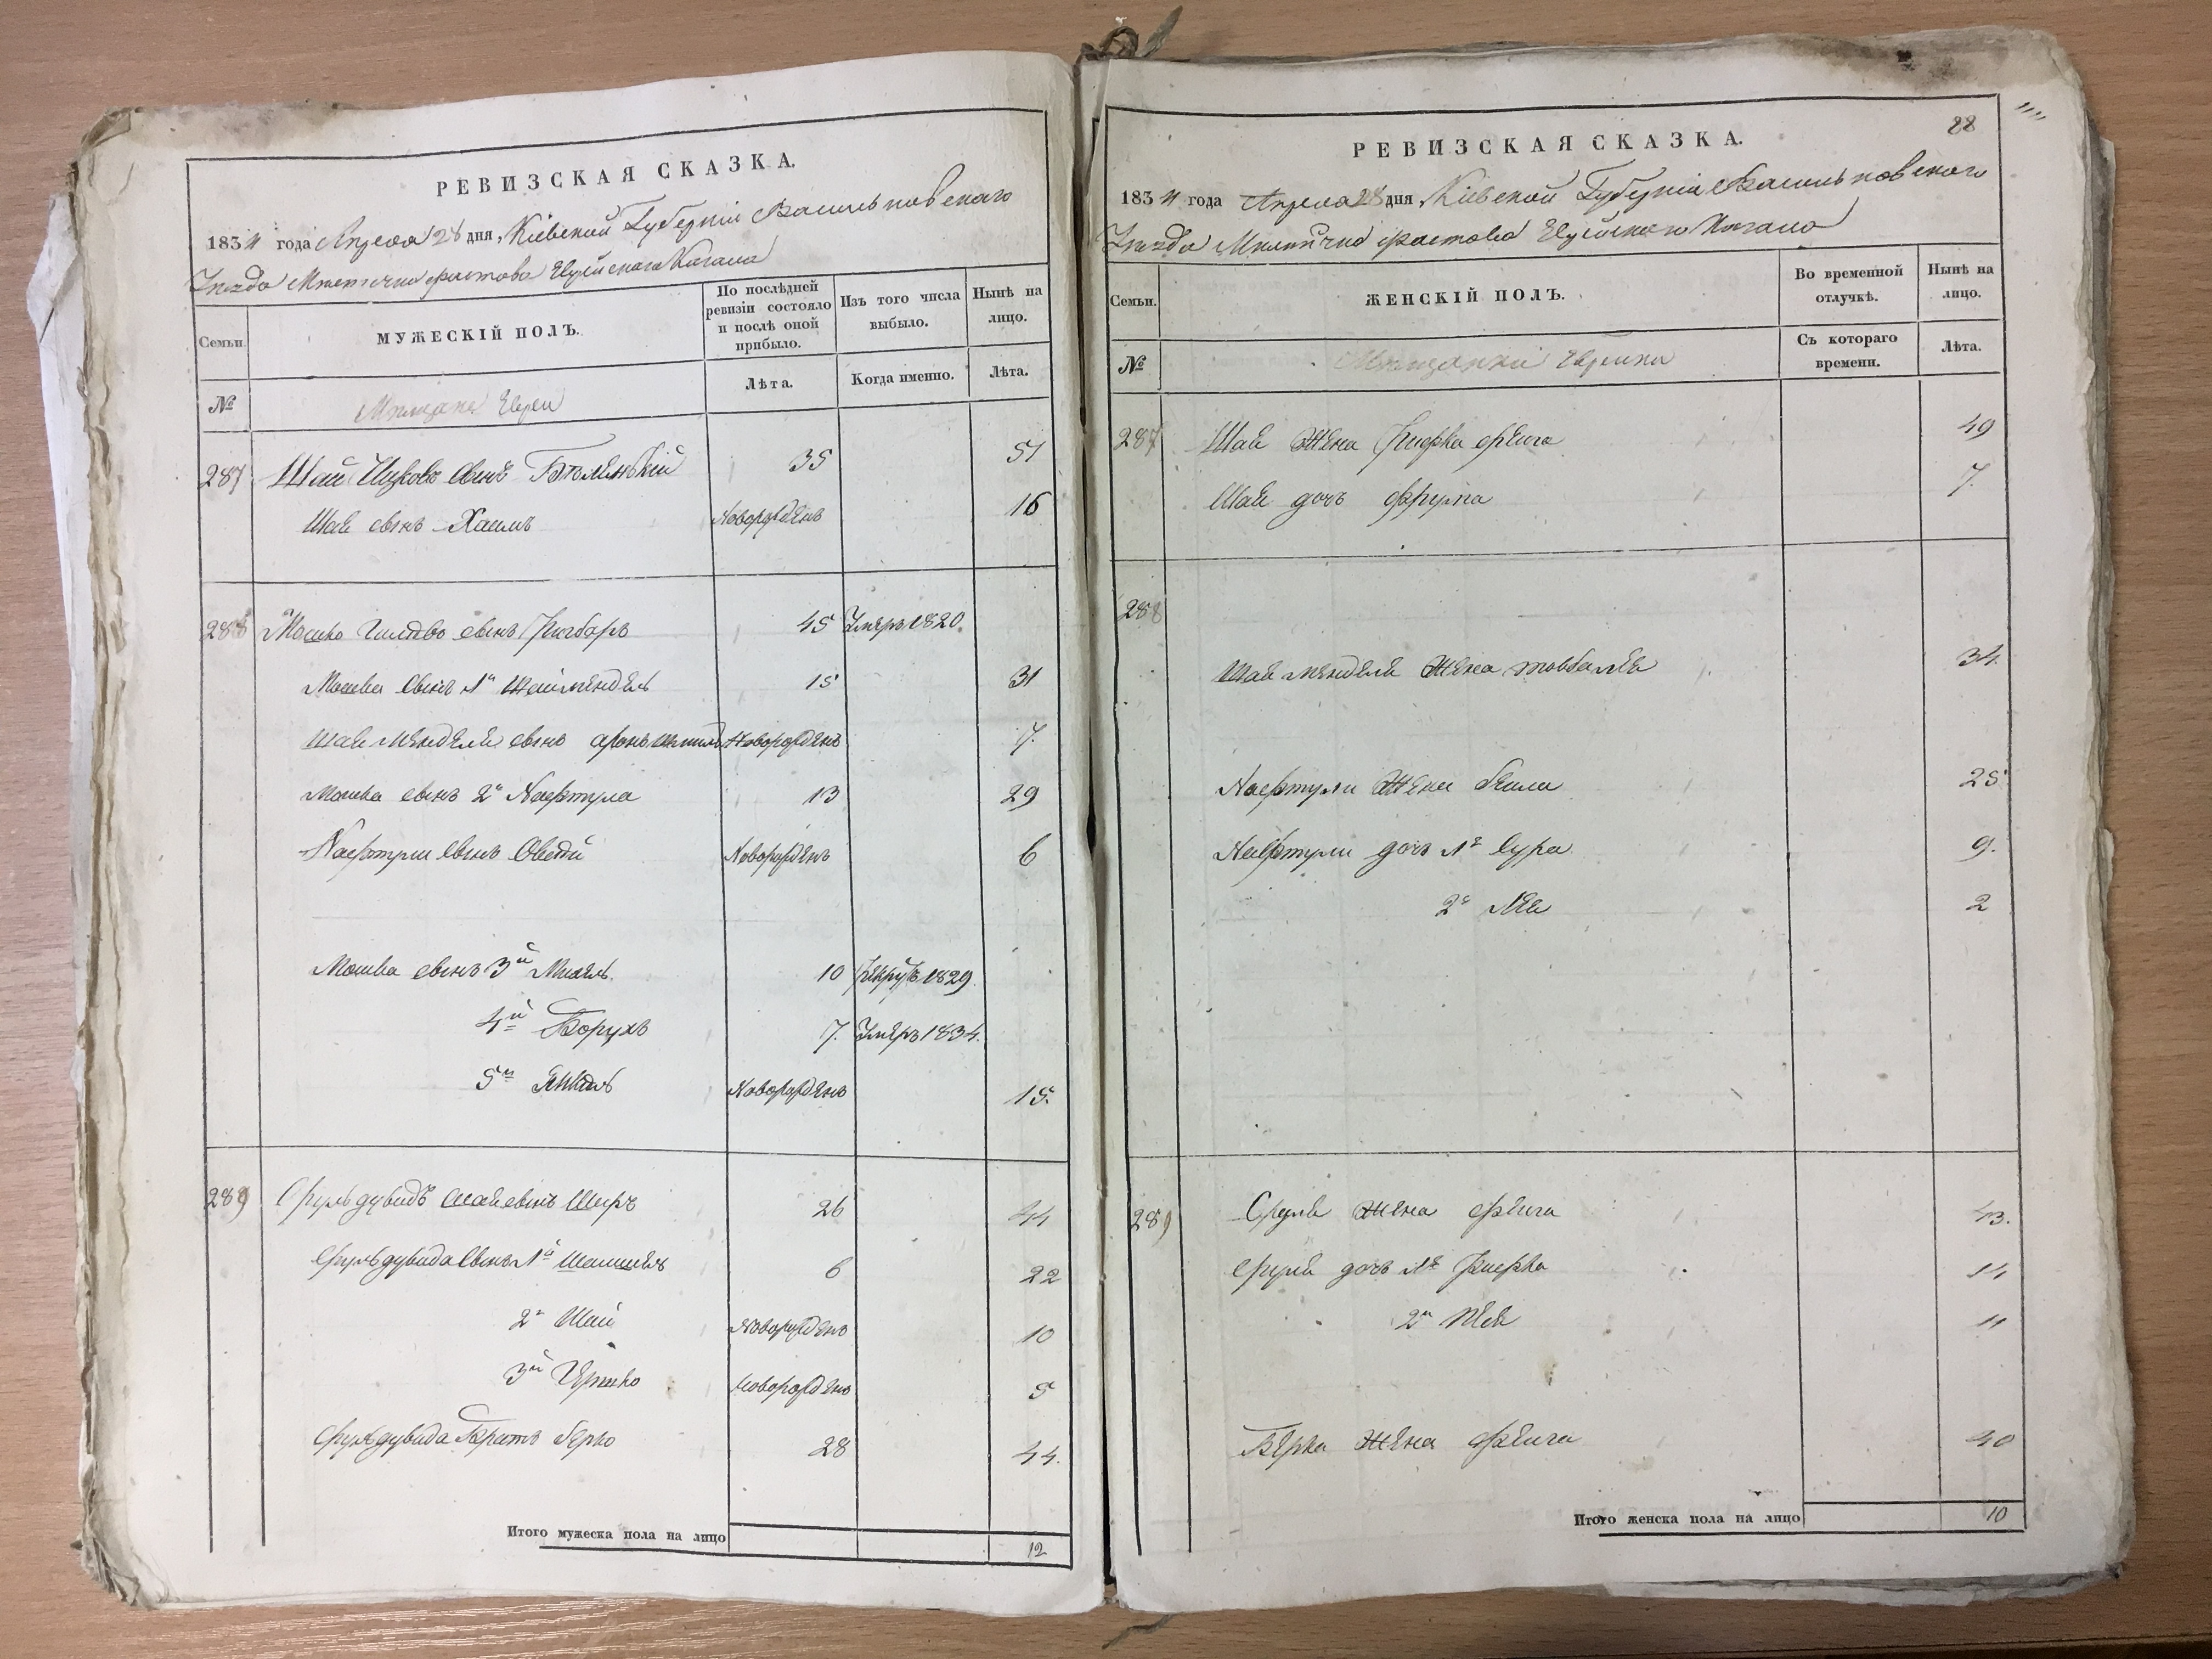 РЕВИЗСКАЯ СКАЗКА.
1834 года Апреля 28 дня, Кіевской Губерніи Васильковскаго
Уезда Мѣстечка Фастова Еврейскаго Кагала
Семьи.
МУЖЕСКІЙ ПОЛЪ.
По послѣдней ревизіи состояло и послѣ оной прибыло.
Изъ того числа выбыло.
Нынѣ на лицо.
№
Мѣщане Евреи
Лѣта.
Когда именно.
Лѣта.
287 Шай Ицковъ сынъ 35 51
Шаи сынъ Хаимъ Новорожденъ 16
288 Мошко сынъ 45 Умеръ 1820.
Мошка сынъ 1й Шаймендель 15 31
Шаи Менделя сынъ Новорожденъ 7.
Мошка сынъ 2й Нафтула 13 29
Нафтули сынъ Овсѣй Новорожденъ 6
Мошка сынъ 3й Михель 10 Рекрутъ 1829.
4й Борухъ 7. Умеръ 1834.
5й Янкель Новорожденъ 15.
289 Сруль дувидъ Шаи сынъ 26 44
Срульдувида сынъ 1й 6 22
2й Шай Новорожденъ 10
3й Гершко Новорожденъ 5
Срульдувида Братъ Берко 28 44.
Итого мужеска пола на лицо 12
28
РЕВИЗСКАЯ СКАЗКА.
1834 года Апреля 28 дня, Кіевской Губерніи Васильковскаго
Уезда Мѣстечка Фастова Еврейскаго Кагала
Семьи.
ЖЕНСКІЙ ПОЛЪ.
Во временной отлучкѣ.
Нынѣ на лицо.
№
Мѣщанки Еврейки
Съ котораго времени.
Лѣта.
287 Шаи жена Рифка фейга 49
Шаи дочь Фрума 7.
288
Шаи Менделя жена 34.
Нафтули жена Бейла 25
Нафтули дочь 1я Сура 9.
2я Лея 2
289 Сруля жена Фейга 43.
Сруля дочь 1я Рифка 14
2я 11
Берка жена Фейга 40
Итого женска пола на лицо 10